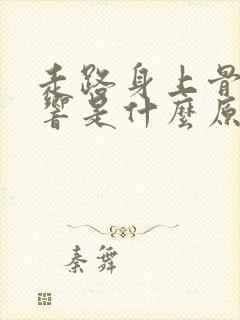 走路身上骨
響是什麼原
秦舞